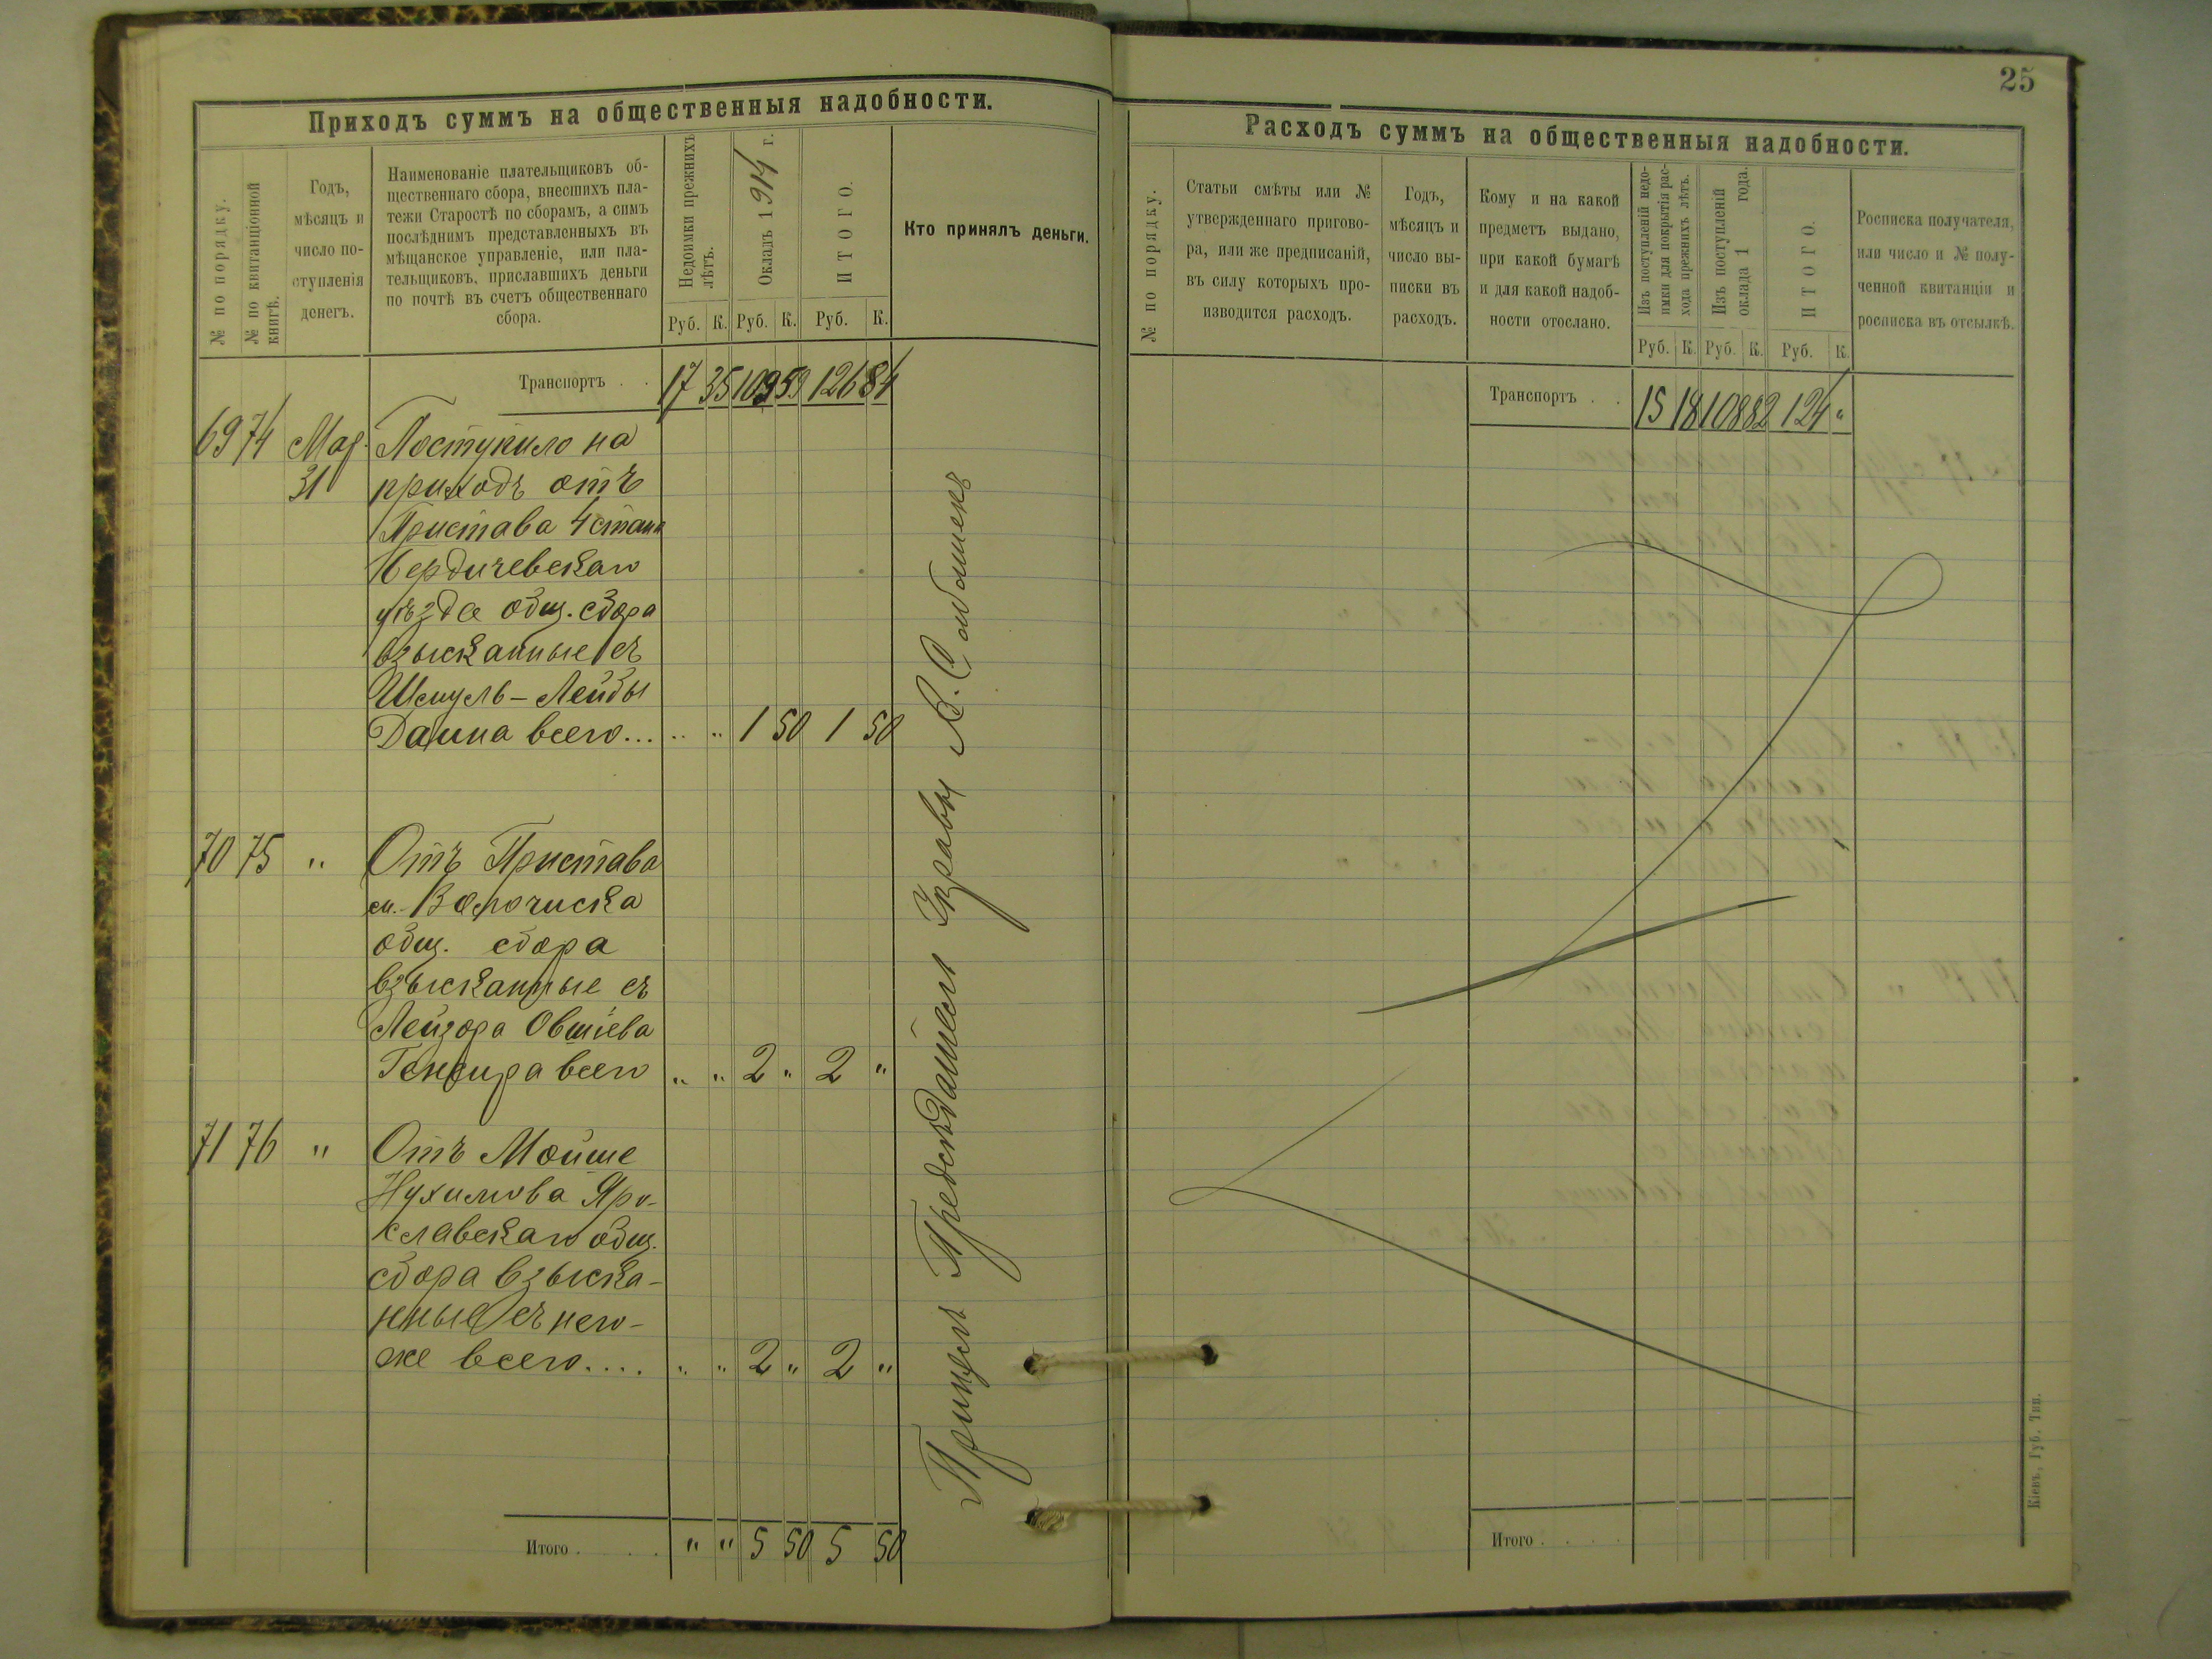 25
Приходъ суммъ на общественныя надобности.
№ по порядку.
№ по квитанціонной
книгѣ.
Годъ,
мѣсяцъ и
число по-
ступленія
денегъ.
Наименованіе плательщиковъ об-
щественнаго сбора, внесшихъ пла-
тежи Старостѣ по сборамъ, а симъ
послѣднимъ представленныхъ въ
мѣщанское управленіе, или пла-
тельщиковъ, приславшихъ деньги
по почтѣ въ счетъ общественнаго
сбора.
Недоимки прежнихъ
лѣтъ.
Окладъ 1914 г.
ИТОГО.
Руб. К. Руб. К. Руб. К.
Кто принялъ деньги.
Транспортъ . . 17 35 109 59 126 84
69 74 Мар. Поступило на
31 приходъ отъ
Пристава 4 стана
Бердичевскаго
уѣзда общ. сбора
взысканные съ
Шмуль-Лейбы
Данна всего... .. " 1 50 1 50
70 75 " Отъ Пристава
м. Волочиска
общ. сбора
взысканные съ
Лейзора Овшіева
всего " " 2 " 2 "
71 76 " Отъ Мойше
Нухимова Яро-
славскаго общ.
сбора взыска-
нные съ него-
же всего.... " " 2 " 2 "
Итого . . . . " " 5 50 5 50
Предсѣдатель Управы
Расходъ суммъ на общественныя надобности.
№ по порядку.
Статьи смѣты или №
утвержденнаго пригово-
ра, или же предписаній,
въ силу которыхъ про-
изводится расходъ.
Годъ,
мѣсяцъ и
число вы-
писки въ
расходъ.
Кому и на какой
предметъ выдано,
при какой бумагѣ
и для какой надоб-
ности отослано.
Изъ поступленій недо-
имки для покрытія рас-
хода прежнихъ лѣтъ.
Изъ поступленій
оклада 1 года.
ИТОГО.
Руб. К. Руб. К. Руб. К.
Росписка получателя,
или число и № полу-
ченной квитанціи и
росписка въ отсылкѣ.
Транспортъ . . 15 18 108 82 124 "
Итого . . . .
Кіевъ, Губ. Тип.